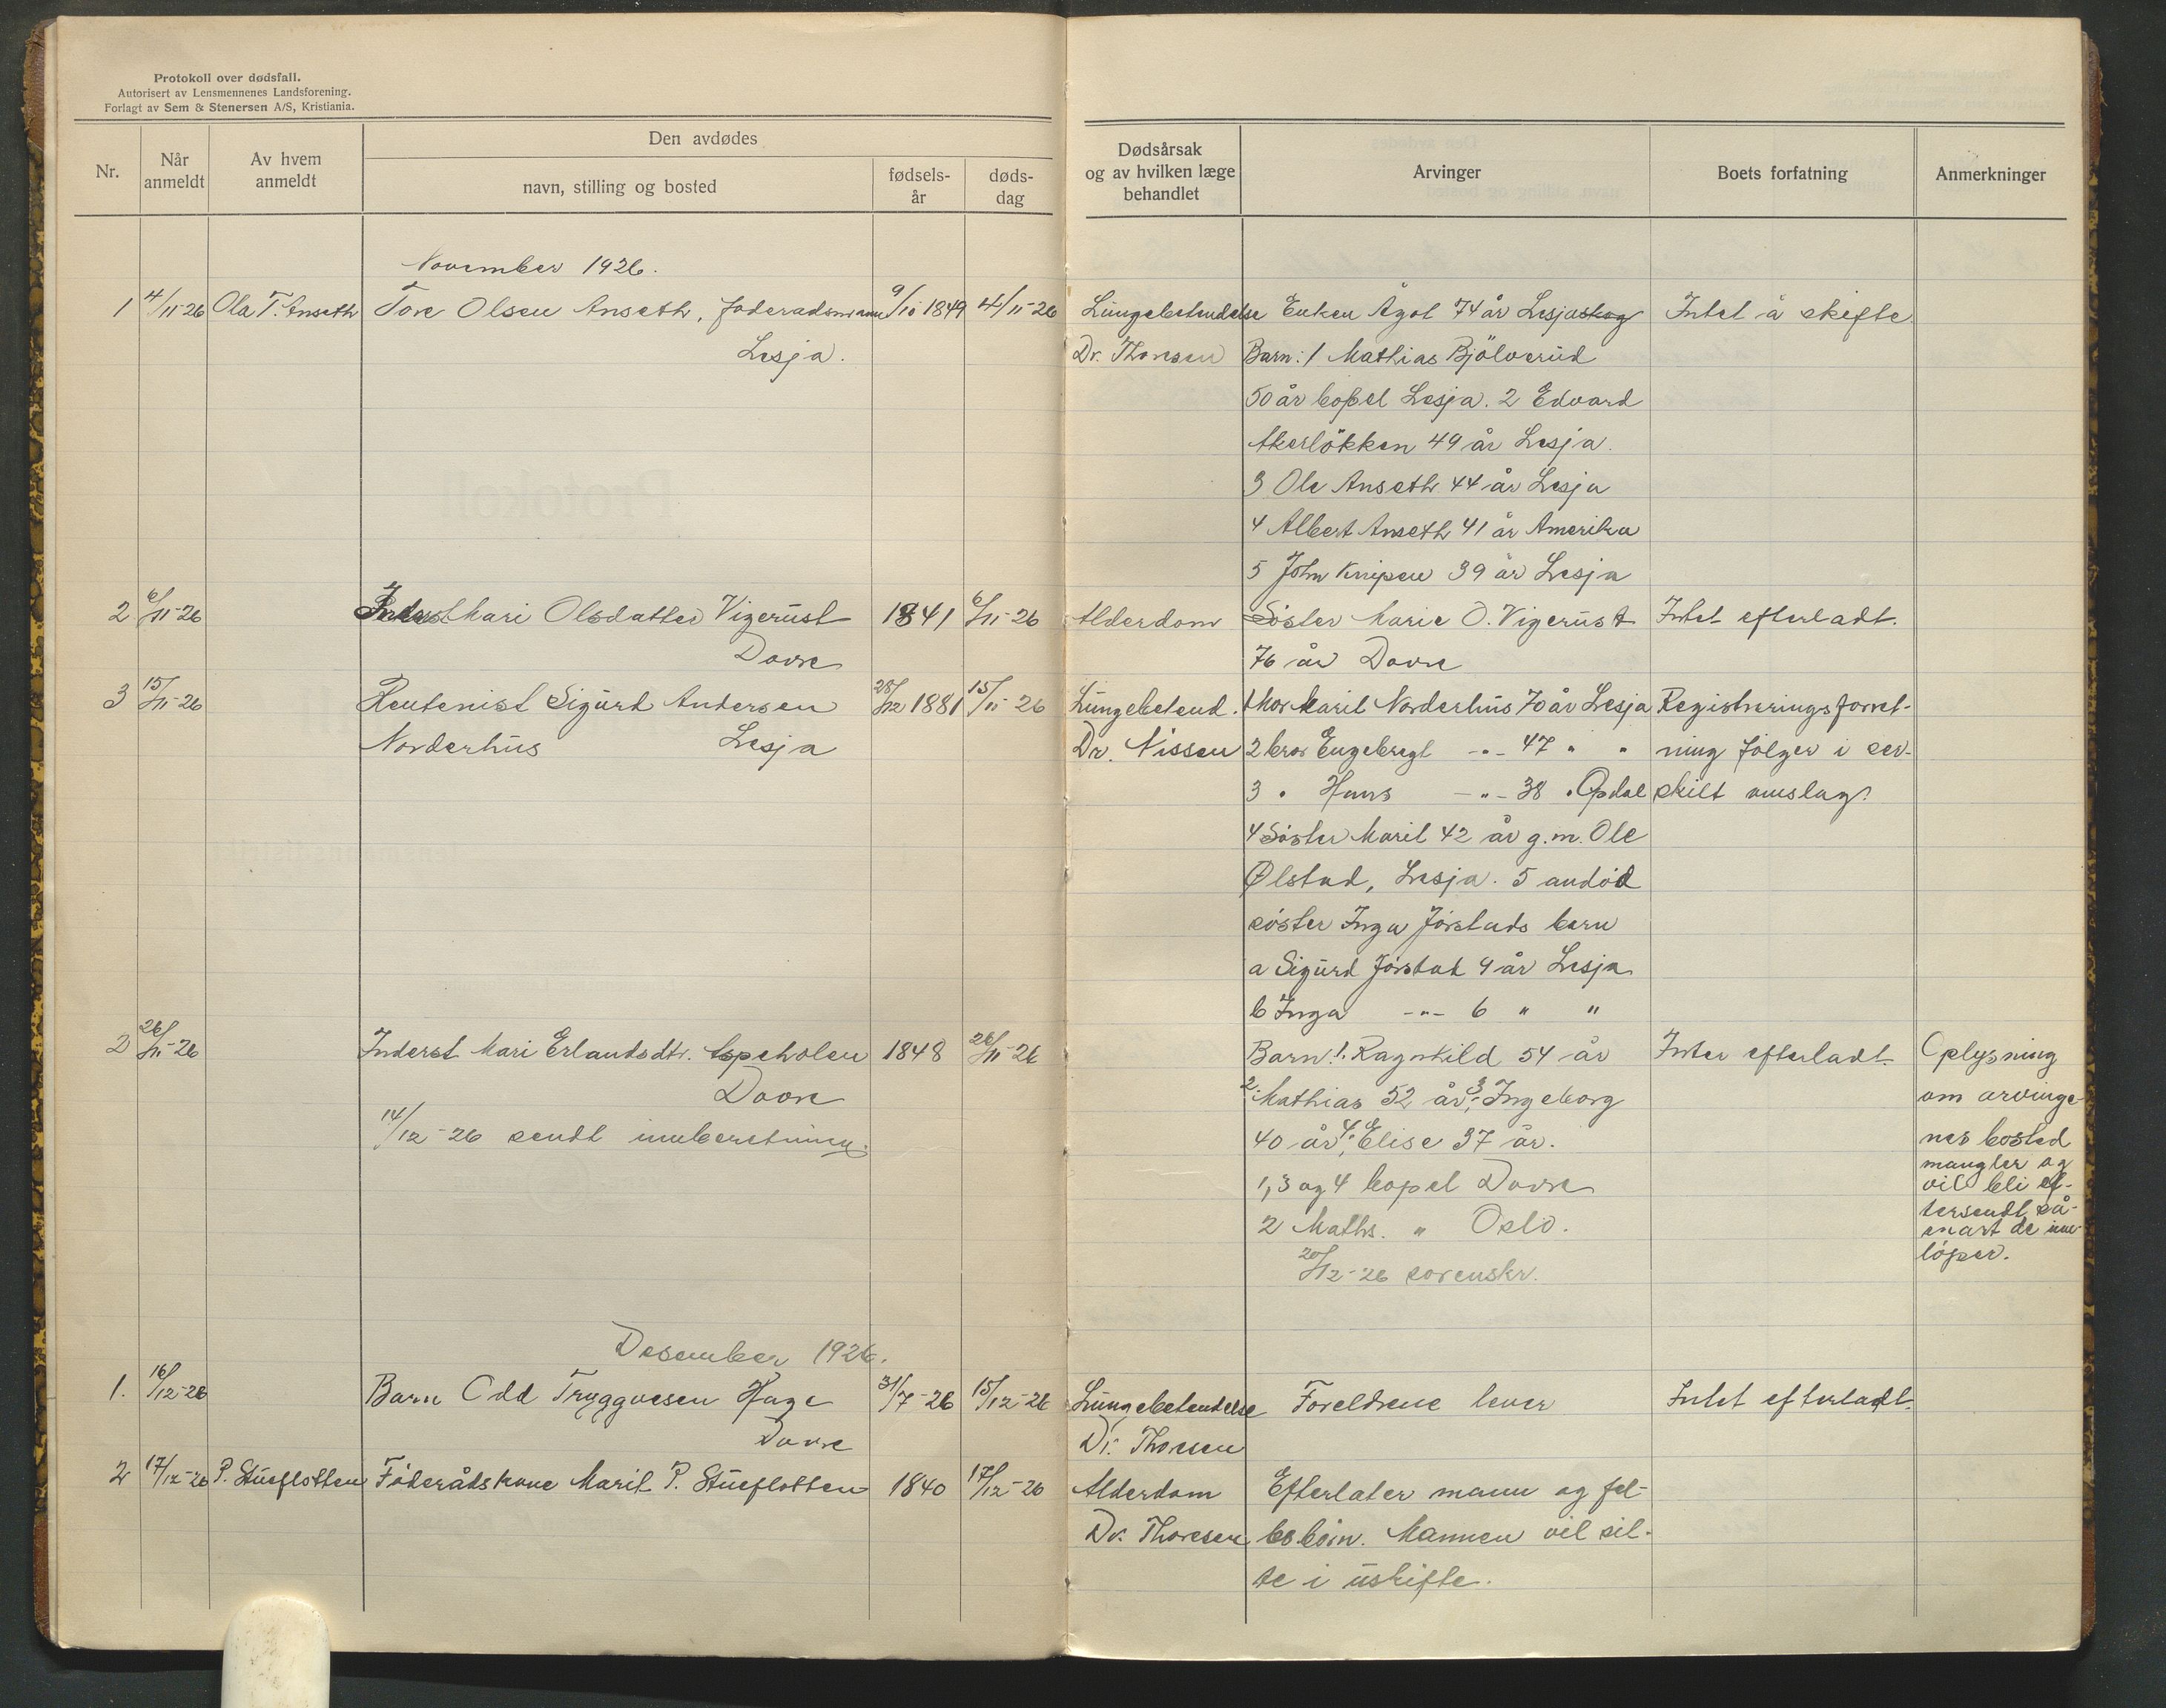 Protokoll over dødsfall.
Autorisert av Lensmennenes Landsforening.
Forlagt av Sem & Stenersen A/S, Kristiania.
Nr.
Når anmeldt
Av hvem anmeldt
Den avdødes
navn, stilling og bosted
fødsels-år
døds-dag
Dødsårsak og av hvilken læge behandlet
Arvinger
Boets forfatning
Anmerkninger
November 1926.
1 4/11-26 Ola T. Anseth Tore Olsen Anseth, foderadsmann 9/10 1849 4/11-26 Lungebetendelse Enken Ågot 74 år Lesjaskog Intet å skifte.
Lesja. Dr. Thoresen Barn: 1 Mathias Bjölverud
50 år bopel Lesja. 2 Edvard
Akerlökken 49 år Lesja.
3 Ole Anseth 44 år Lesja
4 Albert Anseth 41 år Amerika
5 John Knipen 39 år Lesja
2 6/11-26 Inderst Mari Olsdatter Vigerust 1841 6/11-26 Alderdom Söster Marie O. Vigerust Intet efterladt.
Dovre 76 år Dovre
3 15/11-26 Rentenist Sigurd Andersen 28/12 1881 15/11-26 Lungebetend. 1 Mor Marit Norderhus 70 år Lesja Registreringsforret-
Norderhus Lesja Dr. Nissen 2 bror Engebregt -"- 47 " " ning følger i sær-
3 " Hans -"- 38 " Opdal skilt omslag.
4 Söster Marit 42 år g.m. Ole
Ølstad, Lesja. 5 avdöd
söster Inga Jörstads barn
a Sigurd Jörstad 9 år Lesja
b Inga -"- 6 " "
2 26/11-26 Inderst Mari Erlandsdtr. 1848 26/11-26 Barn: 1. Ragnhild 54 år Intet efterladt. Oplysning
Dovre 2. Mathias 52 år, 3. Ingeborg om arvinge-
14/12-26 sendt innberetning. 40 år, 4. Elise 37 år. nes bosted
1, 3 og 4 bopel Dovre mangler og
vil bli ef-
2 Maths. " Oslo. tersendt så-
snart de inn-
20/12-26 sorenskr. löper.
Desember 1926.
1. 16/12-26 Barn Odd Tryggvesen Hage 31/7-26 15/12-26 Lungebetendelse Foreldrene lever Intet efterladt.
Dovre Dr. Thoresen
2 17/12-26 P. Stueflotten Föderådskone Marit P. Stueflotten 1840 17/12-26 Alderdom Efterlater mann og fel-
Dr. Thoresen les börn. Mannen vil sit-
te i uskifte.